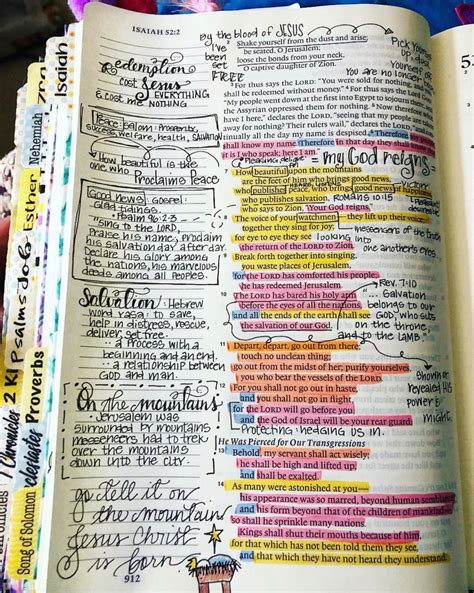 ISAIAH 52:2
Redemption
cost Jesus
EVERYTHING
& cost me
NOTHING
Peace: Shalom: Prosperity,
success, welfare, health, SALVATION
How beautiful is the
one who
Proclaims Peace
Good news: Gospel:
glad tidings.
Psalm 96:2-3
"Sing to the LORD,
Praise his name; proclaim
his salvation day after day.
Declare his glory among
the nations, his marvelous
deeds among all peoples.
Salvation: Hebrew
word yasa: to save,
help in distress, rescue,
deliver, set free
a process with a
beginning and an end.
a relationship between
God and man.
On the mountains
Jerusalem was
surrounded by mountains
messengers had to trek
over the mountains
down into the city.
go tell it on
the mountain
Jesus Christ
is born
912
By the blood of JESUS
I've
been
set
FREE
Shake yourself from the dust and arise;
be seated, O Jerusalem;
loose the bonds from your neck,
O captive daughter of Zion.
3 For thus says the LORD: "You were sold for nothing, and
shall be redeemed without money." 4 For thus says the Lord
"My people went down at the first into Egypt to sojourn there,
the Assyrian oppressed them for nothing. 5 Now therefore what
have I here," declares the LORD, "seeing that my people are taken
away for nothing? Their rulers wail," declares the LORD, "and
tinually all the day my name is despised. 6 Therefore
shall know my name. Therefore in that day they shall
it is I who speak; here I am."
= my God reigns
Pleasing, delight
7 How beautiful upon the mountains
are the feet of him who brings good news,
who publishes peace, who brings good news of happiness,
who publishes salvation, ROMANS 10:15
who says to Zion, "Your God reigns."
8 The voice of your watchmen—they lift up their voice;
together they sing for joy;
for eye to eye they see
the return of the LORD to Zion.
looking into
one another's eyes
messengers of the truth
9 Break forth together into singing,
you waste places of Jerusalem,
for the LORD has comforted his people;
he has redeemed Jerusalem.
10 The LORD has bared his holy arm
before the eyes of all the nations,
and all the ends of the earth shall see
the salvation of our God.
Rev. 7:10
Salvation
belongs to our
God, who sits
on the throne,
and to the LAMB.
11 Depart, depart, go out from there;
touch no unclean thing;
go out from the midst of her; purify yourselves,
you who bear the vessels of the LORD.
12 For you shall not go out in haste,
and you shall not go in flight,
for the LORD will go before you,
and the God of Israel will be your rear guard.
Protecting, hedging us in.
revealed HIS
power &
might.
He Was Pierced for Our Transgressions
13 Behold, my servant shall act wisely;
he shall be high and lifted up,
and shall be exalted.
14 As many were astonished at you—
his appearance was so marred, beyond human semblance,
and his form beyond that of the children of mankind—
15 so shall he sprinkle many nations.
Kings shall shut their mouths because of him,
for that which has not been told them they see,
and that which they have not heard they understand.
Isaiah
Nehemiah
Esther
Job
Psalms
2 Ki
1 Chronicles
Proverbs
Song of Solomon